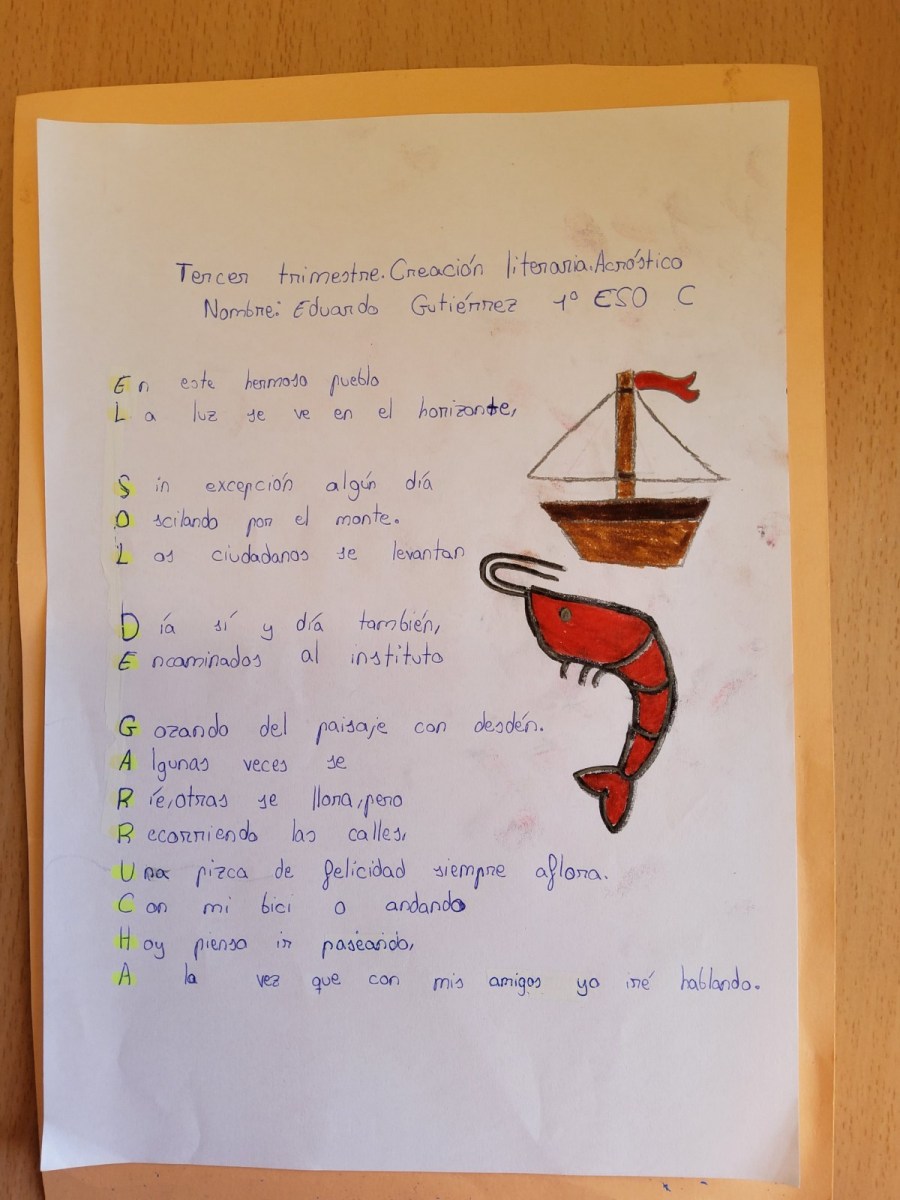 Tercer trimestre. Creación literaria. Acróstico
Nombre: Eduardo Gutiérrez 1º ESO C
En este hermoso pueblo
La luz se ve en el horizonte,
Sin excepción algún día
Oscilando por el monte.
Los ciudadanos se levantan
Día sí y día también,
Encaminados al instituto
Gozando del paisaje con desdén.
Algunas veces se
Ríe, otras se llora, pero
Recorriendo las calles,
Una pizca de felicidad siempre aflora.
Con mi bici o andando
Hoy pienso ir paseando,
A la vez que con mis amigos yo iré hablando.